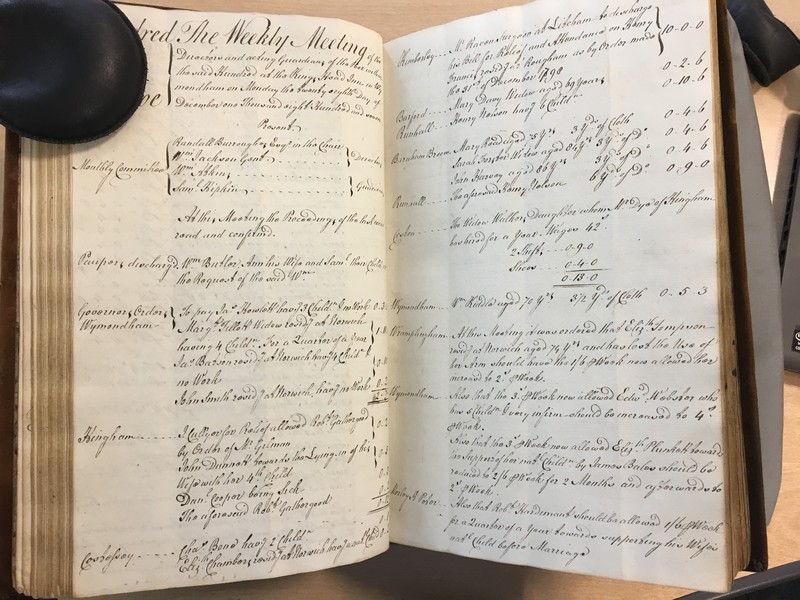 The Weekly Meeting of the
Directors and acting Guardians of the Poor within
the said Hundred at the Kings Head Inn in Wy
mondham on Monday the twenty eighth Day of
December one Thousand eight Hundred and
Present
Randall Burroughes Esqr. in the Chair
Monthly Committee Wm. Jackson Gent. Directors
Wm. Atkins
Saml. Kiphin Guardians
At this Meeting the Proceedings of the last were
read and confirmed.
Paupers discharg'd Wm. Butler, Ann his Wife and Saml. their Child at
the Request of the said Wm.
Governors Orders To pay Jas. Howlett havg. 3 Childn. & no Work 0-3-
Wymondham Mary Willett Widow residg. at Norwich
having 4 Childn. For a Quarter of a Year
Jas. Barson residg. at Norwich havg. 4 Childn. &
no Work
John Smith residg. at Norwich, havg. no Work
Hingham J. Cullyer for Relief allowed Robt. Gathergood
by Order of Mr. Gelman
John Dunnett towards the Lying in of his
Wife with her 4th. Child
Danl. Cooper being Sick
The aforesaid Robt. Gathergood
Cossessey Chas. Bond havg. 2 Childn.
Elizth. Chambers residg. at Norwich havg. a nat. Child
Kimberley Mr. Raven Surgeon at Litcham to discharge
his Bill for Relief and Attendance on Henry
residg. at Rougham as by Order made
the 31st. of December 1790 10-0-0
Burford Mary Davy Widow aged 69 Years 0-2-6
Runhall Henry Nelson havg. 6 Childn. 0-10-6
Barnham Broom Mary Read aged 75 Yrs. 3 Yds. of Cloth 0-4-6
Sarah Forster Widow aged 80 Yrs. 3 Yds. of Do. 0-4-6
John Harvey aged 86 Yrs. 3 Yds. of Do. 0-4-6
Runhall The aforesaid Henry Nelson 6 Yds. of Do. 0-9-0
Coston The Widow Walker, Daughter whom Mr. Dye of Hingham
has hired for a Year. Wages 42s.
2 Shifts 0-9-0
Shoes 0-4-0
0-13-0
Wymondham Wm. Kiddle aged 70 Yrs. 3½ Yds. of Cloth 0-5-3
Wramplingham At this Meeting it was ordered that Elizth. Simpson
residg. at Norwich aged 75 Yrs. and has lost the Use of
her Arm should have the 1/6 ⅌ Week now allowed her
increased to 2s. ⅌ Week.
Wymondham Also that the 3s. ⅌ Week now allowed Edwd. Webster who
has 5 Childn. & very infirm should be increased to 4s.
⅌ Week.
Also that the 3s. ⅌ Week now allowed Elizth. Plunkett toward
the Support of her nat. Childn. by James Bales should be
reduced to 2/6 ⅌ Week for 2 Months and afterwards to
2s. ⅌ Week.
Morley St. Peter Also that Robt. Hardiment should be allowed 1/6 ⅌ Week
for a Quarter of a Year towards supporting his Wife's
nat. Child before Marriage